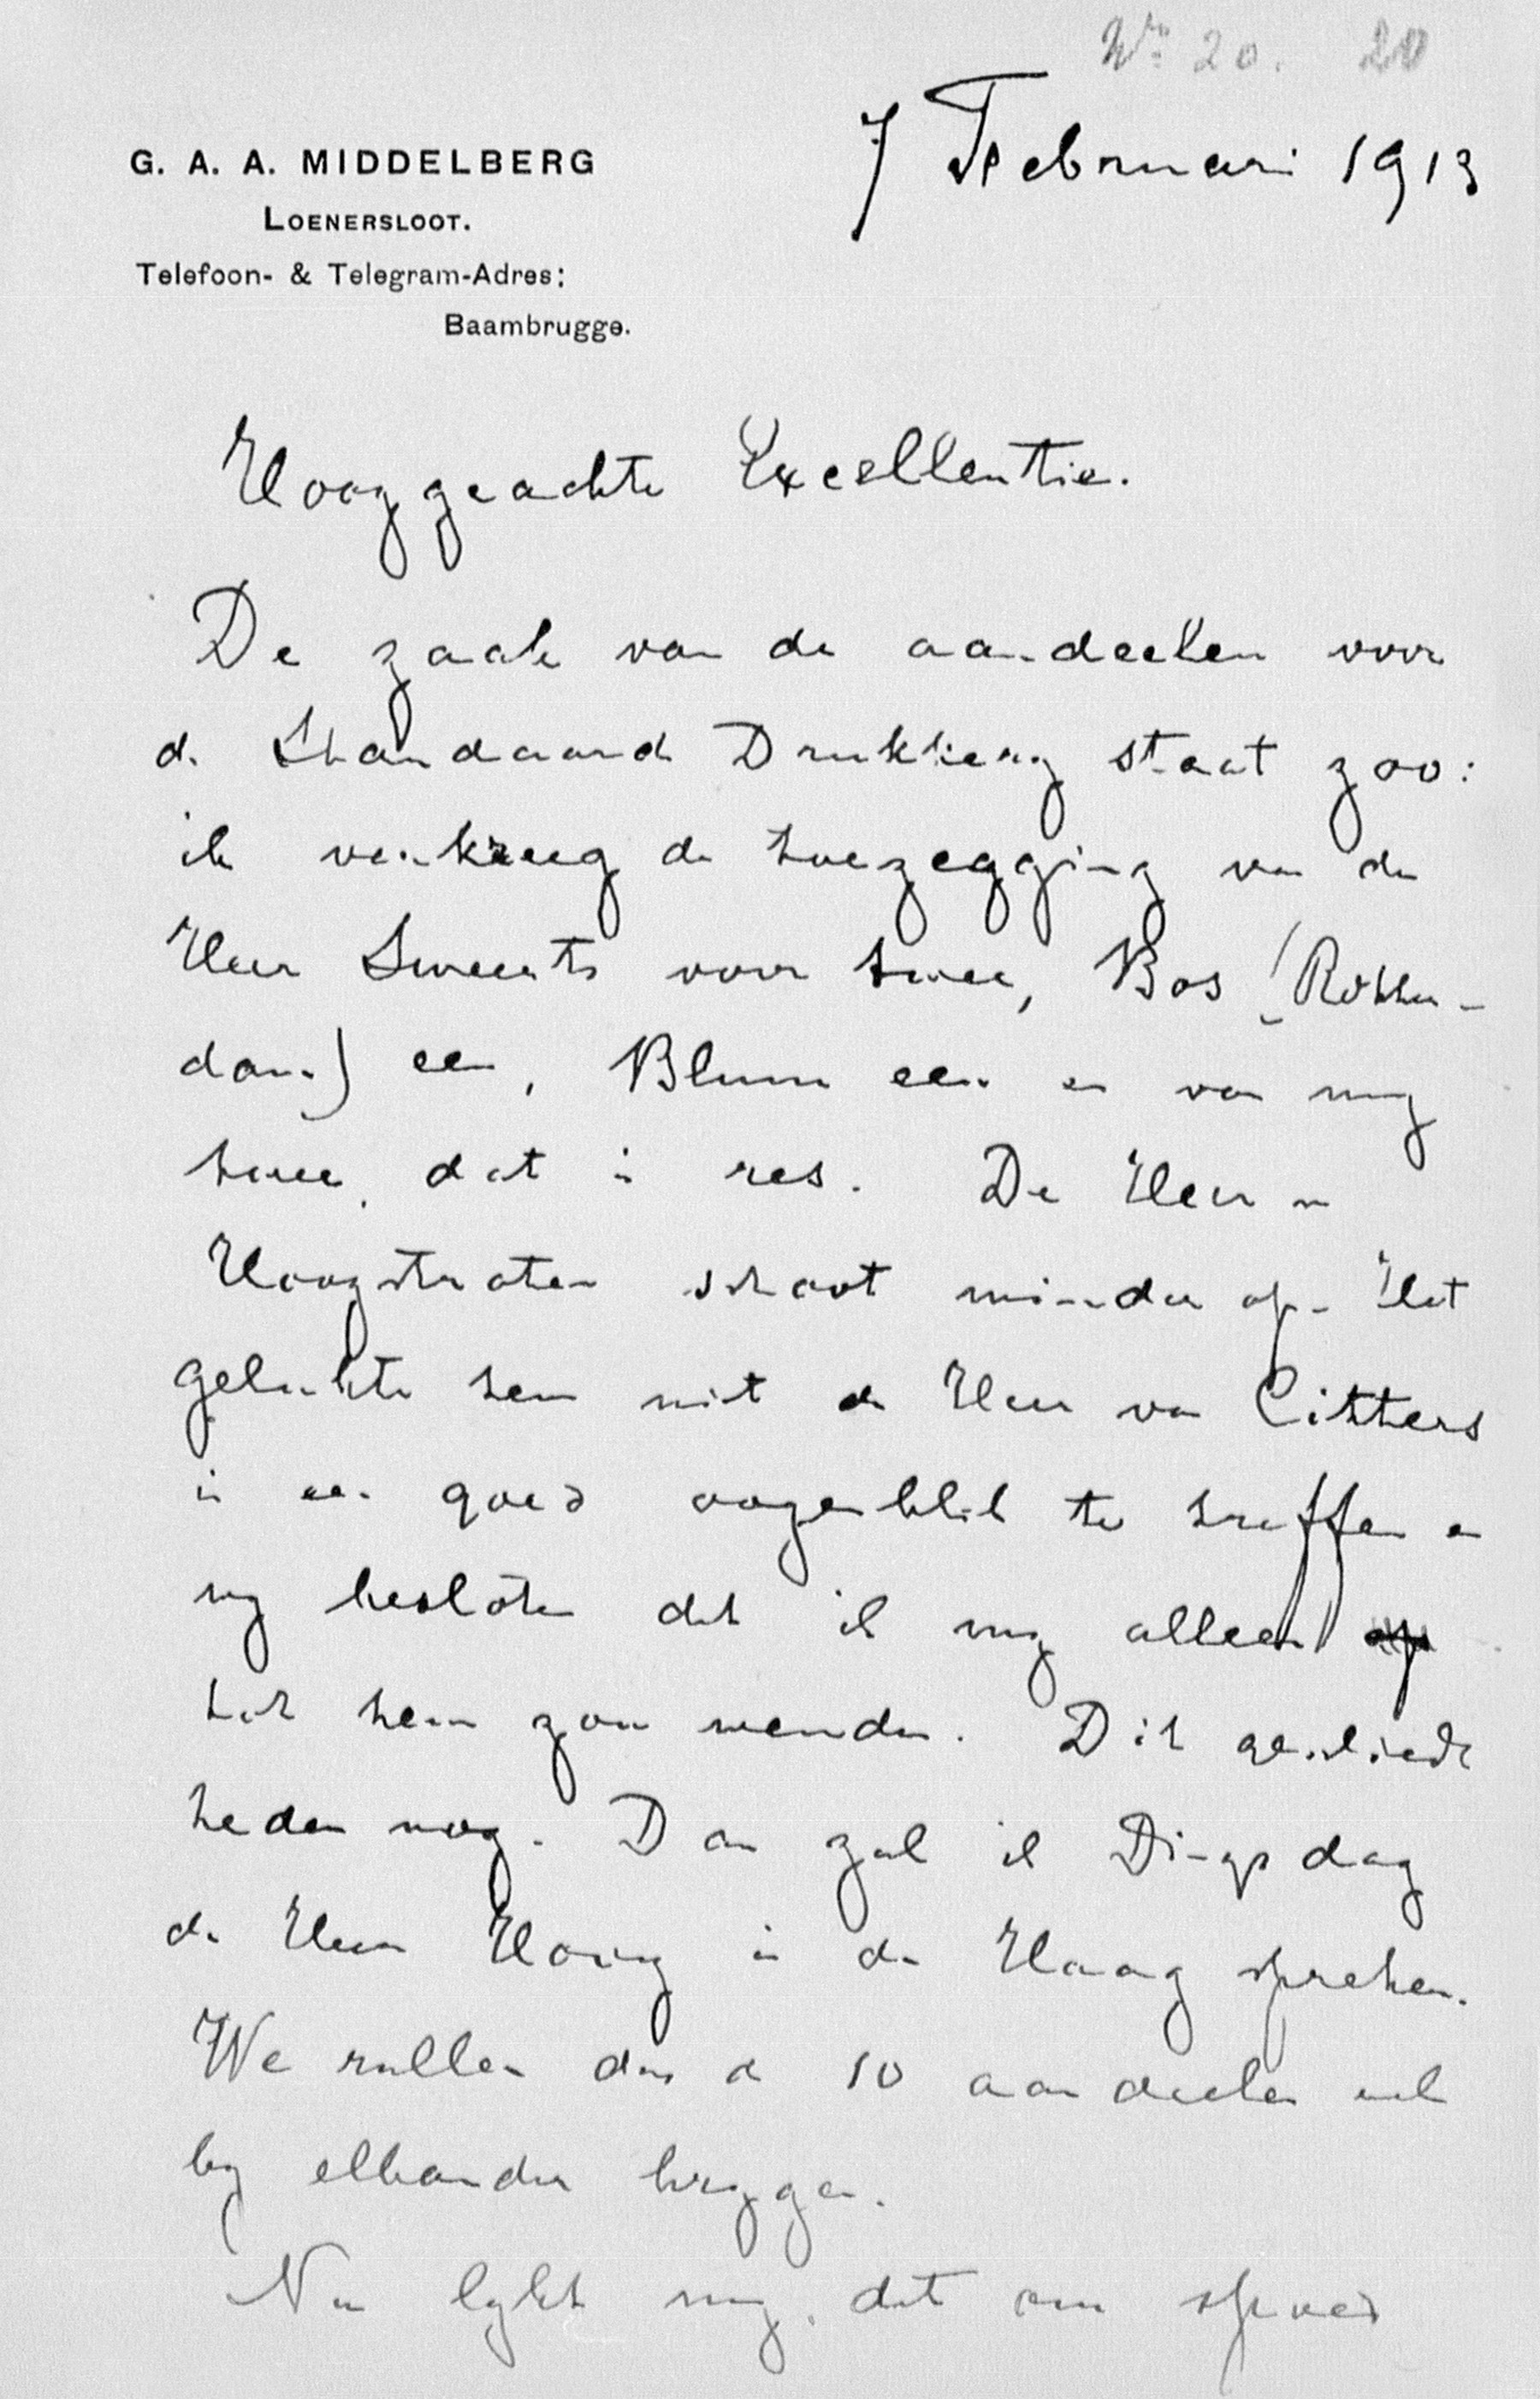 No 20. 20
7 Februari 1913
G. A. A. MIDDELBERG
LOENERSLOOT.
Telefoon- & Telegram-Adres:
Baambrugge.
Hooggeachte Excellentie.
De zaak van de aandeelen voor
de Standaard Drukkerij staat zoo:
ik verkreeg de toezegging van den
Heer Sweerts voor twee, Bos (Rotter-
dam) een, Blum een en van mij
twee, dat is zes. De Heer
Hoogstraten schoot minder op. Het
gelukte hem niet den Heer van Citters
in een goed oogenblik te treffen en
wij besloten dat ik mij alleen
tot hem zou wenden. Dit geschiedt
heden nog. Dan zal ik Dingsdag
den Heer in den Haag spreken.
We zullen dus de 10 aandeelen wel
bij elkander krijgen.
Nu lijkt mij, dat om spoed